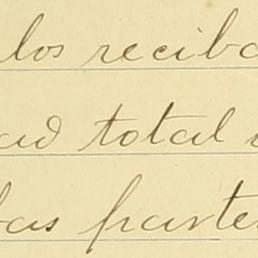 los reciba
ad total
bas parte